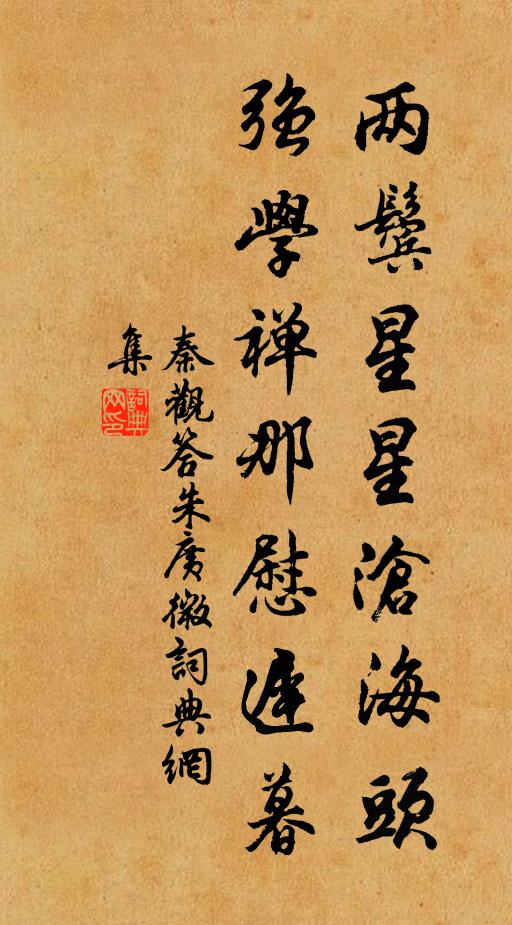 两鬓星星滄海頭
强學禅那慰遲暮
秦觀答朱廣微詞典網
集
詞典网印